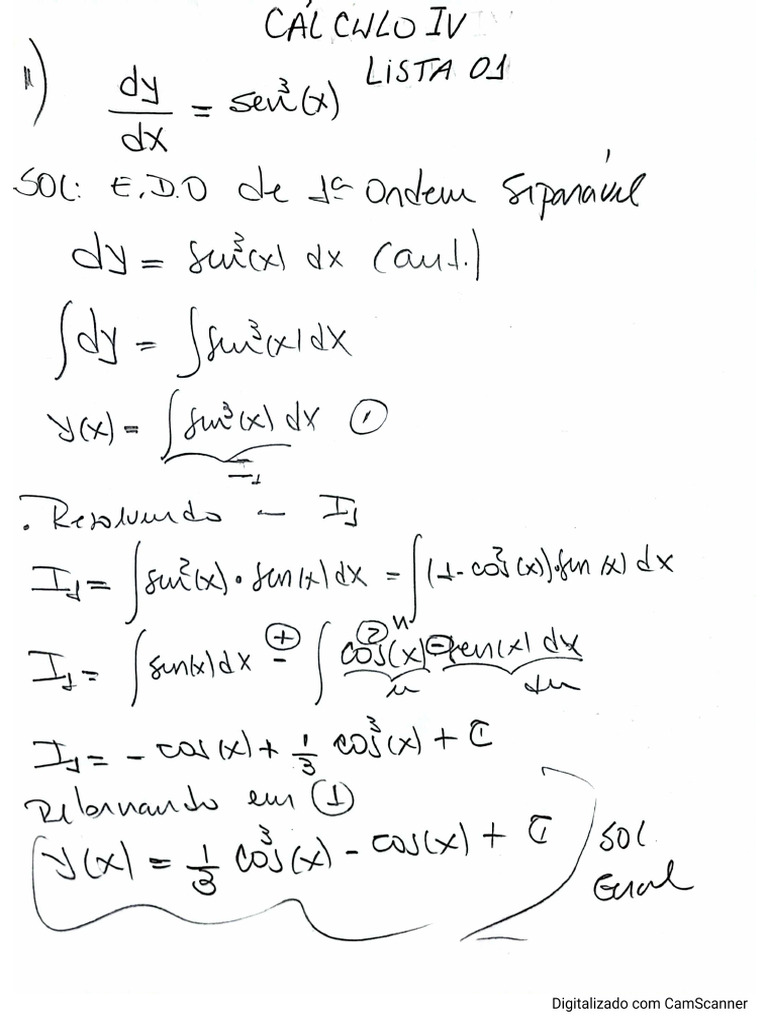 CÁLCULO IV
LISTA 01
1) dy/dx = sen³(x)
SOL: E.D.O de 1ª Ordem Separável
dy = sen³(x) dx (ant.)
∫dy = ∫sen³(x)dx
y(x) = ∫sen³(x) dx ①
I₁
. Resolvendo - I₁
I₁ = ∫sen²(x)·sen(x)dx = ∫(1-cos²(x))·sen(x) dx
I₁ = ∫sen(x)dx ⊕ ∫cos²(x) ⊖sen(x) dx
u du
I₁ = - cos(x) + 1/3 cos³(x) + C
Retornando em ①
y(x) = 1/3 cos³(x) - cos(x) + C
SOL
Geral
Digitalizado com CamScanner